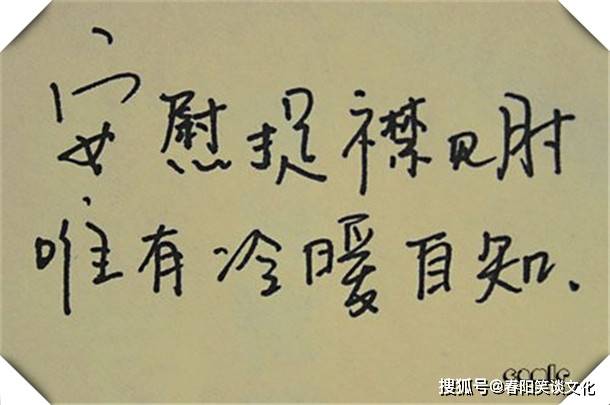 安慰捉襟见肘
唯有冷暖自知.
搜狐号@春阳笑谈文化